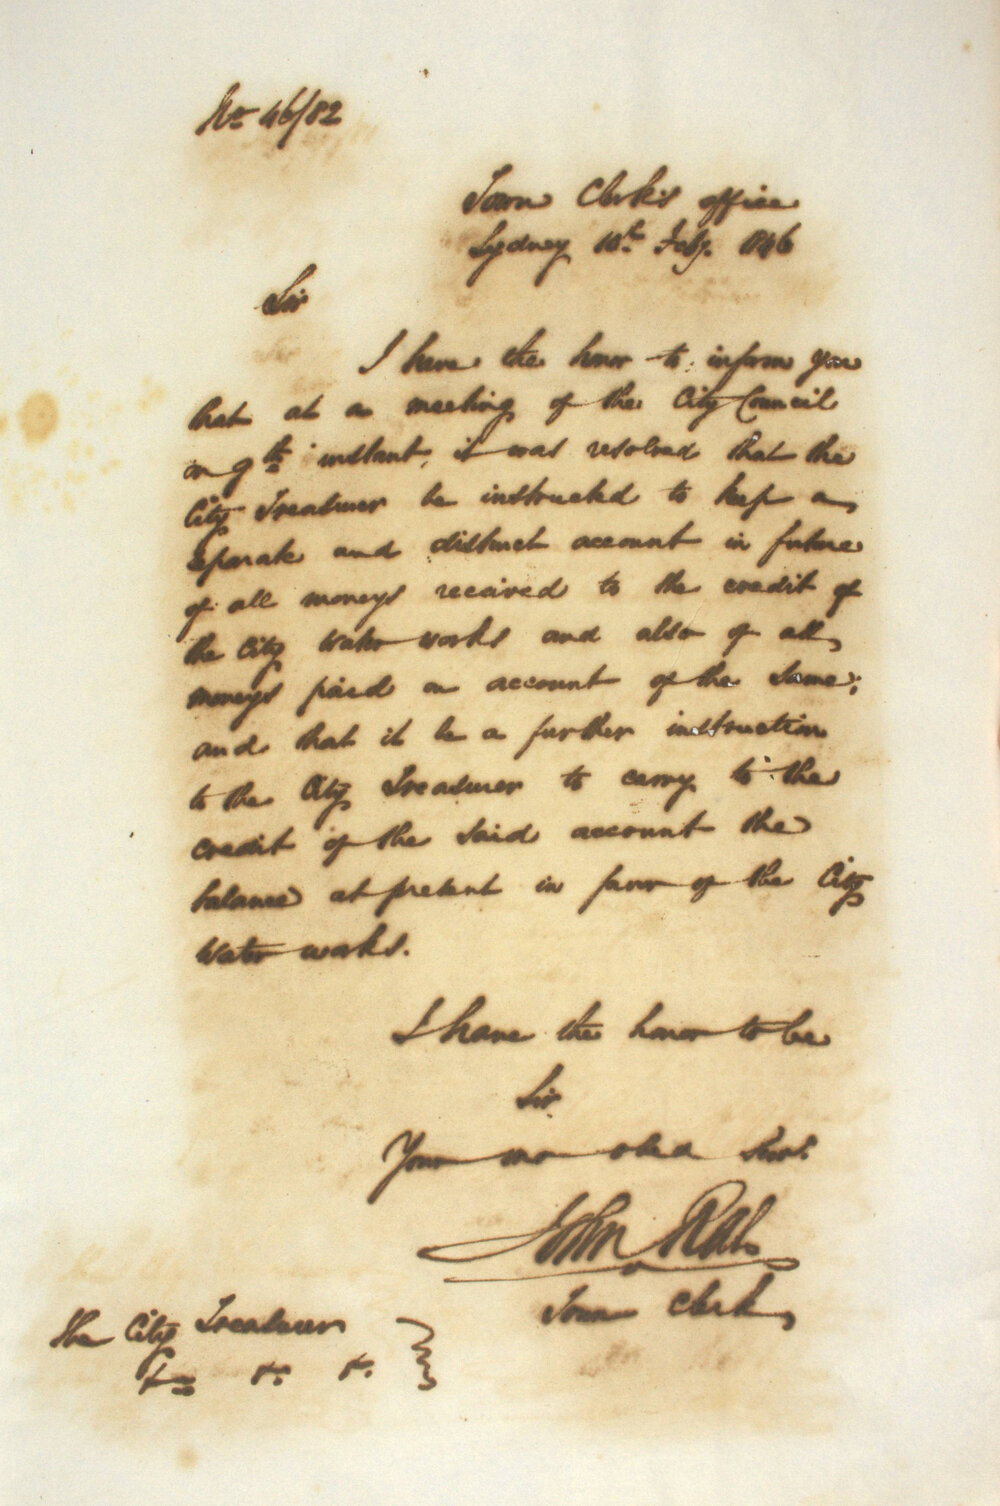 No 46/82
Town Clerk's office
Sydney 10th Feby. 1846
Sir
I have the honor to inform you
that at a meeting of the City Council
on 9th instant, it was resolved that the
City Treasurer be instructed to keep a
separate and distinct account in future
of all moneys received to the credit of
the City Water works and also of all
moneys paid on account of the same;
and that it be a further instruction
to the City Treasurer to carry to the
credit of the said account the
balance at present in favor of the City
Water works.
I have the honor to be
Sir
Your mo obed Servt
John Rae
Town Clerk
The City Treasurer
&c &c &c